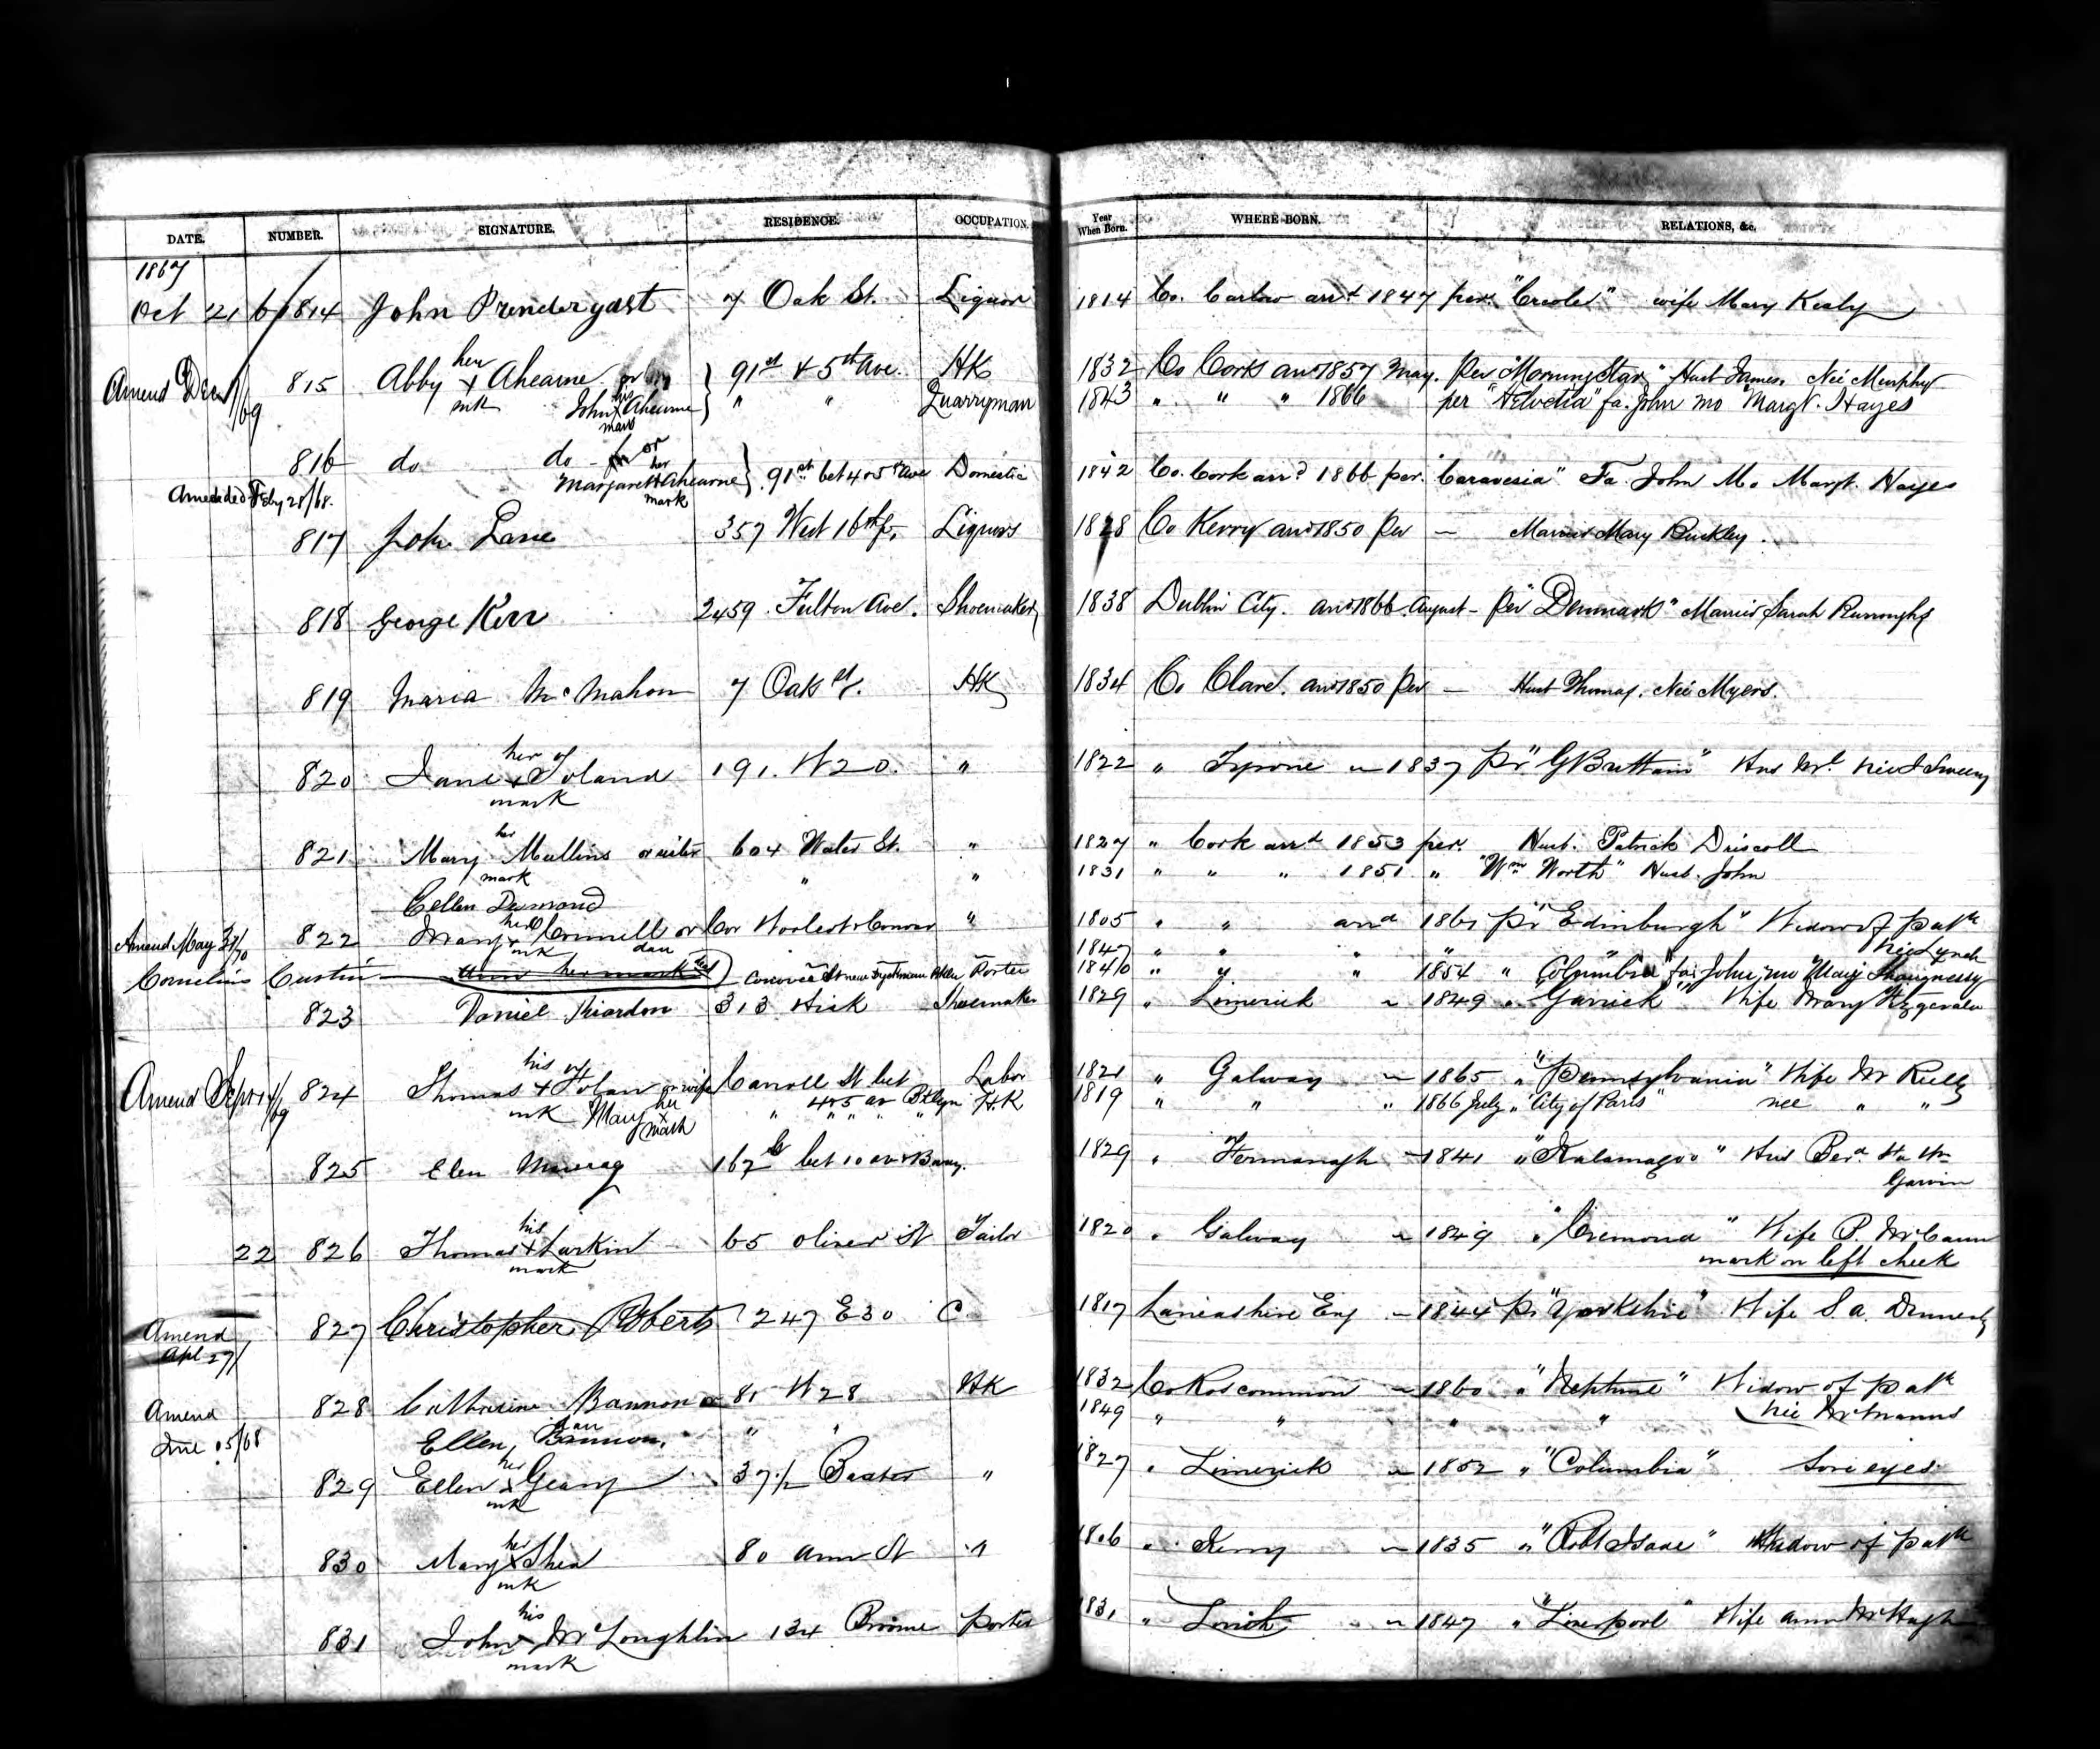 DATE. NUMBER. SIGNATURE. RESIDENCE. OCCUPATION. Year When Born. WHERE BORN. RELATIONS, &c.
1867
Oct 21 61814 John Prendergast 7 Oak St. Liquor 1814 Co. Carlow arrd 1847 per "Creole" wife Mary Kealy
her
Amend Dec 1/69 815 Abby + Ahearne or 91st & 5th Ave. HK 1832 Co Cork arrd 1857 May. Per "Morning Star" Husb James. Neé Murphy
mk John his + Ahearne mark " " Quarryman 1843 " " " 1866 per "Helvetia" fa. John mo Margt. Hayes
816 do do or
her
Margaret + Ahearne 91st bet 4 & 5th Ave Domestic 1842 Co. Cork arrd 1866 per. Fa. John Mo. Margt. Hayes
mark
Amended Feby 28/68.
817 John Lane 357 West 16th St. Liquors 1828 Co Kerry arrd 1850 Per — Married Mary Buckley.
818 George Kerr 2459. Fulton Ave. Shoemaker 1838 Dublin City. arrd 1866. August - Per "Denmark" Married Sarah Burroughs
819 Maria McMahon 7 Oak St. HK 1834 Co Clare. arrd 1850 Per — Husb Thomas. Neé Myers.
her
820 Jane + Toland 191. W 20. " 1822 " Tyrone " 1837 Pr "G Brittain" Hus
mark
her
821 Mary Mullins or sister 604 Water St. " 1827 " Cork arrd 1853 per. Husb. Patrick Driscoll
mark " " 1831 " " " 1851 " "Wm Worth" Husb. John
Ellen Desmond
her
Amend May 31/70 822 Mary + Connell or Cor " 1805 " " arrd 1861 Pr "Edinburgh" Widow of Patk
mk dau 1847 " " " " Nee Lynch
Cornelius Custin Porter 1840 " " " 1854 " "Columbia" fa John, mo Mary Shaugnessy
823 Daniel Riardon 313 Hick Shoemaker 1829 " Limerick " 1849 " "Garrick" Wife Mary Fitzgerald
his
Amend Sept 14/69 824 Thomas + or wife Carroll St bet Labor 1821 " Galway " 1865 " "Pennsylvania" Wife M Kelly
mk Mary her + mark " 4 & 5 av Bklyn H.K 1819 " " " 1866 July " "City of Paris" nee " "
825 Elen 162 St bet 10 av & Bway. 1829 " Fermanagh " 1841 " "Kalamazoo" Hus
Garvin
his
22 826 Thomas + Larkin 65 Oliver St Tailor 1820 " Galway " 1849 " Wife P. McCann
mark mark on left cheek
Amend Apl 27/ 827 Christopher Roberts 247 E 30 C 1817 Lancashire Eng " 1844 Pr "Yorkshire" Wife S. A.
828 Catherine Bannon or 81 W 28 HK 1832 Co Roscommon " 1860 " "Neptune" Widow of Patk
Amend June 05/68 dau
Ellen, Bannon. " " 1849 " " " " Nee McManus
her
829 Ellen + Geary 37½ Baxter " 1827 " Limerick " 1852 " "Columbia" Sore eyes
mk
her
830 Mary + Shea 80 Ann St " 1806 " Kerry " 1835 " Widow of Patk
mk
his
831 John + McLoughlin 134 Broome Porter 1831 " " 1847 " "Liverpool" Wife Ann McHugh
mark